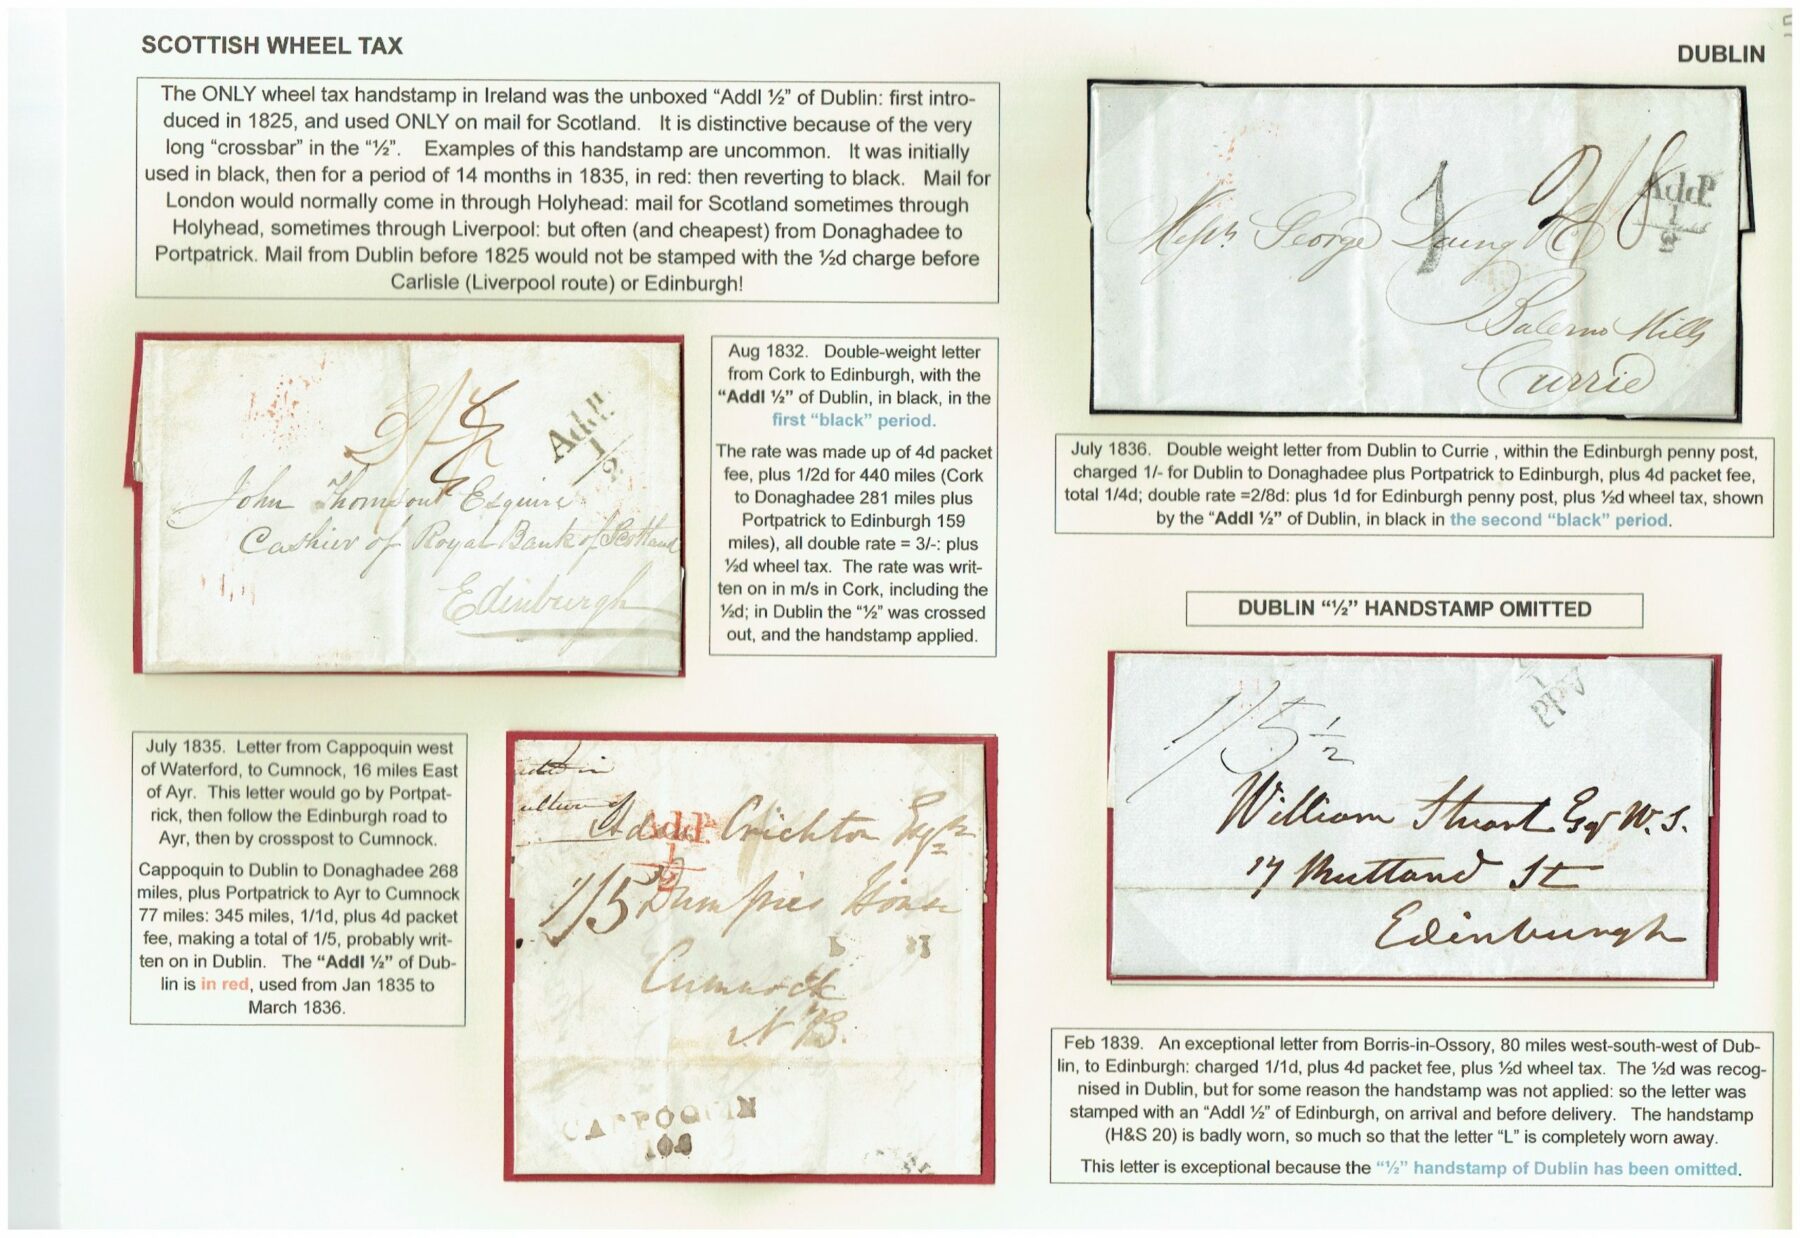 SCOTTISH WHEEL TAX
DUBLIN
The ONLY wheel tax handstamp in Ireland was the unboxed “Addl ½” of Dublin: first intro-
duced in 1825, and used ONLY on mail for Scotland. It is distinctive because of the very
long “crossbar” in the “½”. Examples of this handstamp are uncommon. It was initially
used in black, then for a period of 14 months in 1835, in red: then reverting to black. Mail for
London would normally come in through Holyhead: mail for Scotland sometimes through
Holyhead, sometimes through Liverpool: but often (and cheapest) from Donaghadee to
Portpatrick. Mail from Dublin before 1825 would not be stamped with the ½d charge before
Carlisle (Liverpool route) or Edinburgh!
Addl.
1/2
John Thomson Esquire
Cashier of Royal Bank of Scotland
Edinburgh
Aug 1832. Double-weight letter
from Cork to Edinburgh, with the
“Addl ½” of Dublin, in black, in the
first “black” period.
The rate was made up of 4d packet
fee, plus 1/2d for 440 miles (Cork
to Donaghadee 281 miles plus
Portpatrick to Edinburgh 159
miles), all double rate = 3/-: plus
½d wheel tax. The rate was writ-
ten on in m/s in Cork, including the
½d; in Dublin the “½” was crossed
out, and the handstamp applied.
July 1835. Letter from Cappoquin west
of Waterford, to Cumnock, 16 miles East
of Ayr. This letter would go by Portpat-
rick, then follow the Edinburgh road to
Ayr, then by crosspost to Cumnock.
Cappoquin to Dublin to Donaghadee 268
miles, plus Portpatrick to Ayr to Cumnock
77 miles: 345 miles, 1/1d, plus 4d packet
fee, making a total of 1/5, probably writ-
ten on in Dublin. The “Addl ½” of Dub-
lin is in red, used from Jan 1835 to
March 1836.
Addl.
1/2
Crichton Esqr
1/5 Dumfries House
Cumnock
N B.
CAPPOQUIN
108
1
2/8
Addl.
1/2
Messrs George Laing & Co
Balerno Mills
Currie
July 1836. Double weight letter from Dublin to Currie , within the Edinburgh penny post,
charged 1/- for Dublin to Donaghadee plus Portpatrick to Edinburgh, plus 4d packet fee,
total 1/4d; double rate =2/8d: plus 1d for Edinburgh penny post, plus ½d wheel tax, shown
by the “Addl ½” of Dublin, in black in the second “black” period.
DUBLIN “½” HANDSTAMP OMITTED
1/5 ½
Add
William Stuart Esqr W.S.
17 Mutland St
Edinburgh
Feb 1839. An exceptional letter from Borris-in-Ossory, 80 miles west-south-west of Dub-
lin, to Edinburgh: charged 1/1d, plus 4d packet fee, plus ½d wheel tax. The ½d was recog-
nised in Dublin, but for some reason the handstamp was not applied: so the letter was
stamped with an “Addl ½” of Edinburgh, on arrival and before delivery. The handstamp
(H&S 20) is badly worn, so much so that the letter “L” is completely worn away.
This letter is exceptional because the “½” handstamp of Dublin has been omitted.